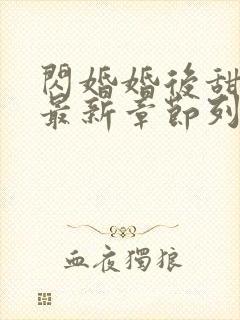 閃婚婚後甜
最新章節列
血夜獨狼